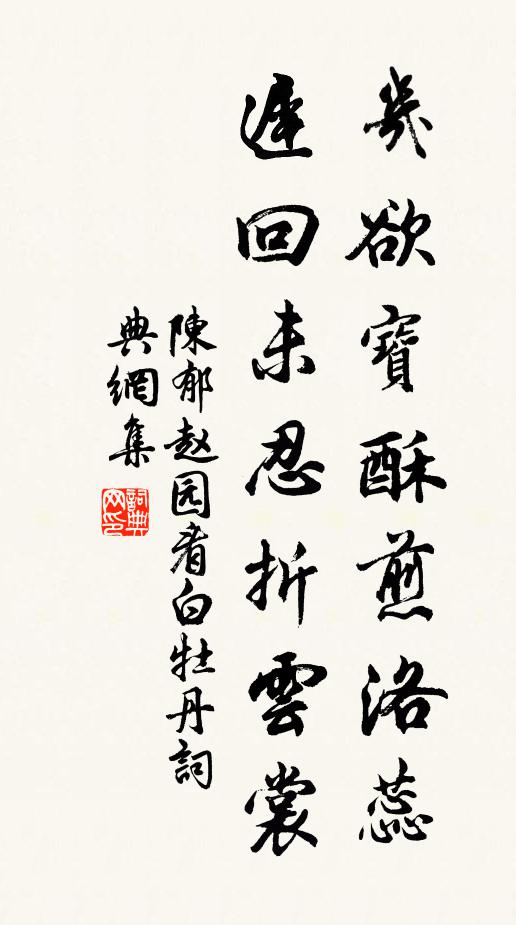 幾欲寶酥煎洛蕊
遲回未忍折雲裳
陳郁赵园看白牡丹詞
典網集
詞典网印